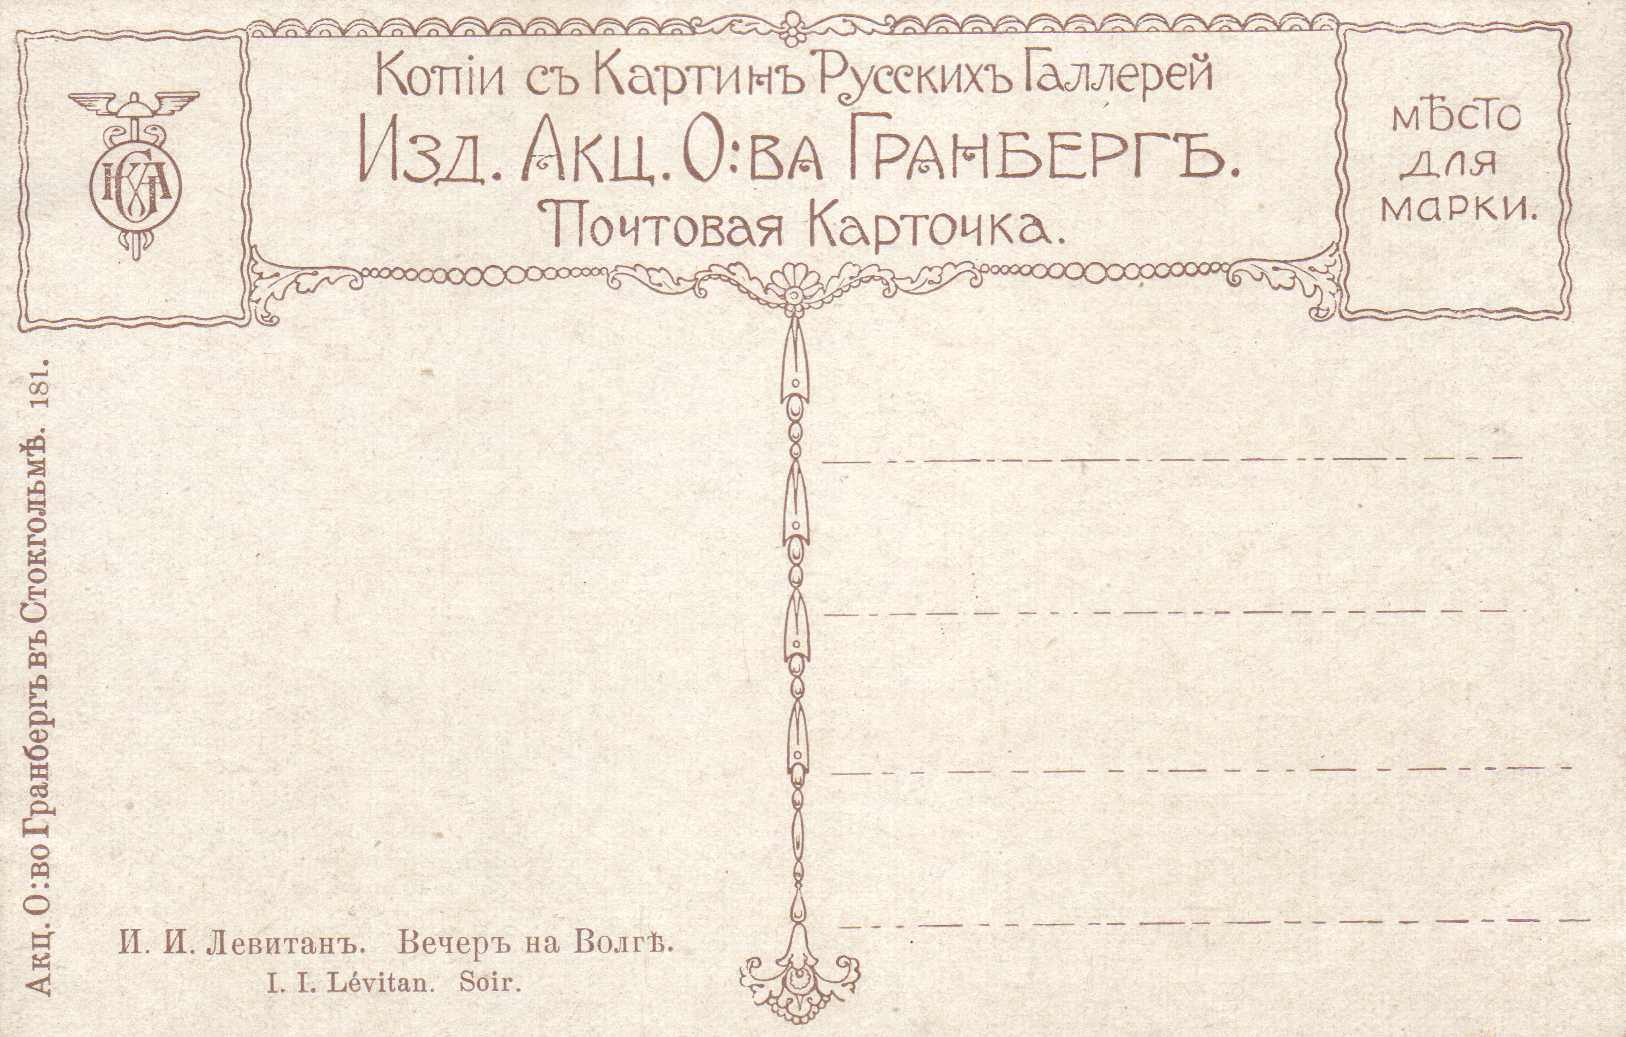 Копіи съ Картинъ Русскихъ Галлерей
Изд. Акц. О:ва Гранбергъ.
Почтовая Карточка.
мѣсто
для
марки.
Акц. О:во Гранбергъ въ Стокгольмѣ. 181.
И. И. Левитанъ. Вечеръ на Волгѣ.
I. I. Lévitan. Soir.